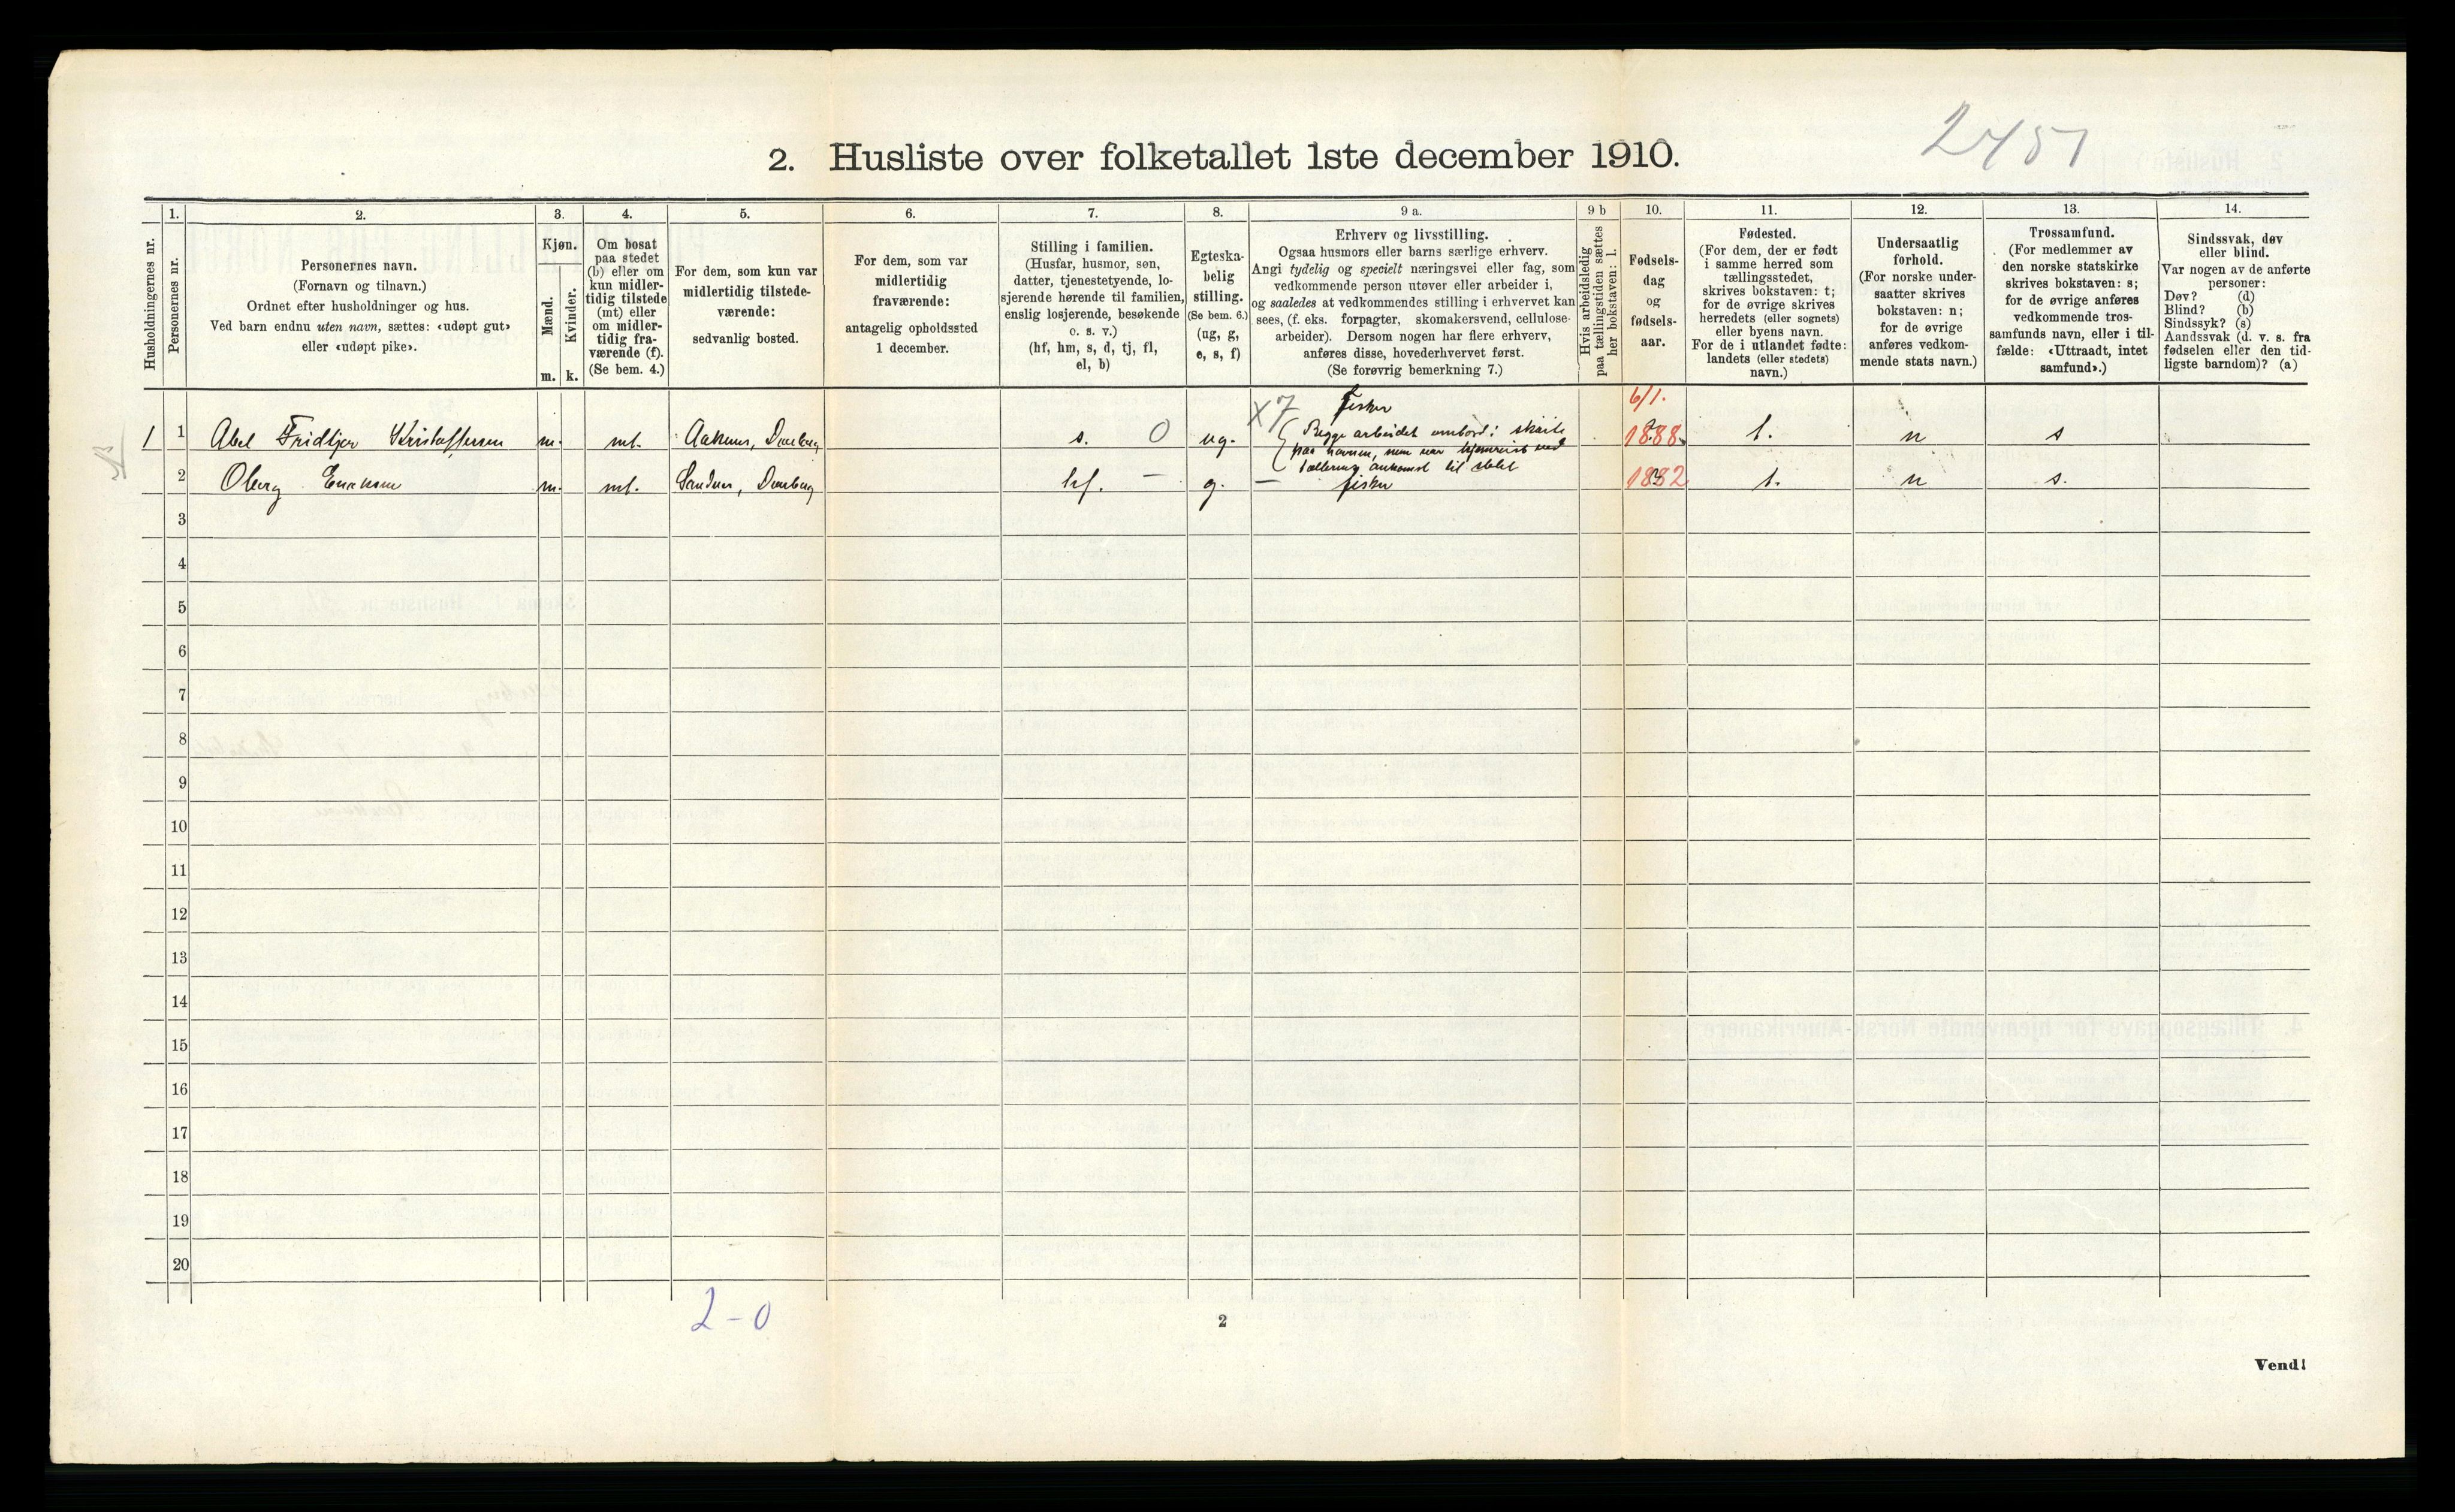 2. Husliste over folketallet 1ste december 1910.
2451
Husholdningernes nr.
1.
Personernes nr.
2.
Personernes navn.
(Fornavn og tilnavn.)
Ordnet efter husholdninger og hus.
Ved barn endnu uten navn, sættes: «udøpt gut»
eller «udøpt pike».
3.
Kjøn.
Mænd.
Kvinder.
m.
k.
4.
Om bosat
paa stedet
(b) eller om
kun midler-
tidig tilstede
(mt) eller
om midler-
tidig fra-
værende (f).
(Se bem. 4.)
5.
For dem, som kun var
midlertidig tilstede-
værende:
sedvanlig bosted.
6.
For dem, som var
midlertidig
fraværende:
antagelig opholdssted
1 december.
7.
Stilling i familien.
(Husfar, husmor, søn,
datter, tjenestetyende, lo-
sjerende hørende til familien,
enslig losjerende, besøkende
o. s. v.)
(hf, hm, s, d, tj, fl,
el, b)
8.
Egteska-
belig
stilling.
(Se bem. 6.)
(ug, g,
e, s, f)
9 a.
Erhverv og livsstilling.
Ogsaa husmors eller barns særlige erhverv.
Angi tydelig og specielt næringsvei eller fag, som
vedkommende person utøver eller arbeider i,
og saaledes at vedkommendes stilling i erhvervet kan
sees, (f. eks. forpagter, skomakersvend, cellulose-
arbeider). Dersom nogen har flere erhverv,
anføres disse, hovederhvervet først.
(Se forøvrig bemerkning 7.)
9 b
Hvis arbeidsledig
paa tællingstiden sættes
her bokstaven: l.
10.
Fødsels-
dag
og
fødsels-
aar.
11.
Fødested.
(For dem, der er født
i samme herred som
tællingsstedet,
skrives bokstaven: t;
for de øvrige skrives
herredets (eller sognets)
eller byens navn.
For de i utlandet fødte:
landets (eller stedets)
navn.)
12.
Undersaatlig
forhold.
(For norske under-
saatter skrives
bokstaven: n;
for de øvrige
anføres vedkom-
mende stats navn.)
13.
Trossamfund.
(For medlemmer av
den norske statskirke
skrives bokstaven: s;
for de øvrige anføres
vedkommende tros-
samfunds navn, eller i til-
fælde: «Uttraadt, intet
samfund».)
14.
Sindssvak, døv
eller blind.
Var nogen av de anførte
personer:
Døv? (d)
Blind? (b)
Sindssyk? (s)
Aandssvak (d. v. s. fra
fødselen eller den tid-
ligste barndom)? (a)
X7 Fisker 6/1.
1 1 Abel Fridtjov Kristoffersen m. mt. s. 0 ug. Begge arbeidet ombord i skøite 1888 t. n s
paa havnen, som var hjemreist ved
tællerens ankomst til stedet
2 Oberg m. mt. hf. – g. – fisker 1882 t. n s.
3
4
5
6
7
8
9
10
11
12
13
14
15
16
17
18
19
20
2–0
2
Vend!